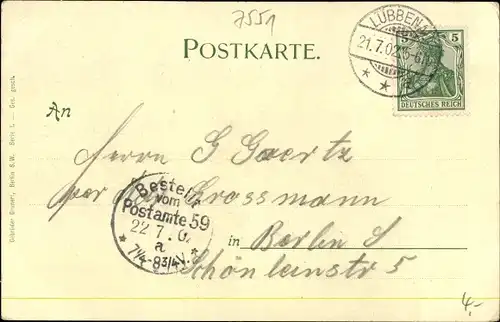 7551
POSTKARTE.
LÜBBEN
21.7.02. 5-6N.
5 5
DEUTSCHES REICH
An
Herrn G Gaertz
per Grossmann
Bestellt
vom
Postamte 59
22.7.02
a
7¼-8¾V.
in Berlin S
Schönleinstr 5
4,-
Berlin S.W. Serie I. — Ges. gesch.